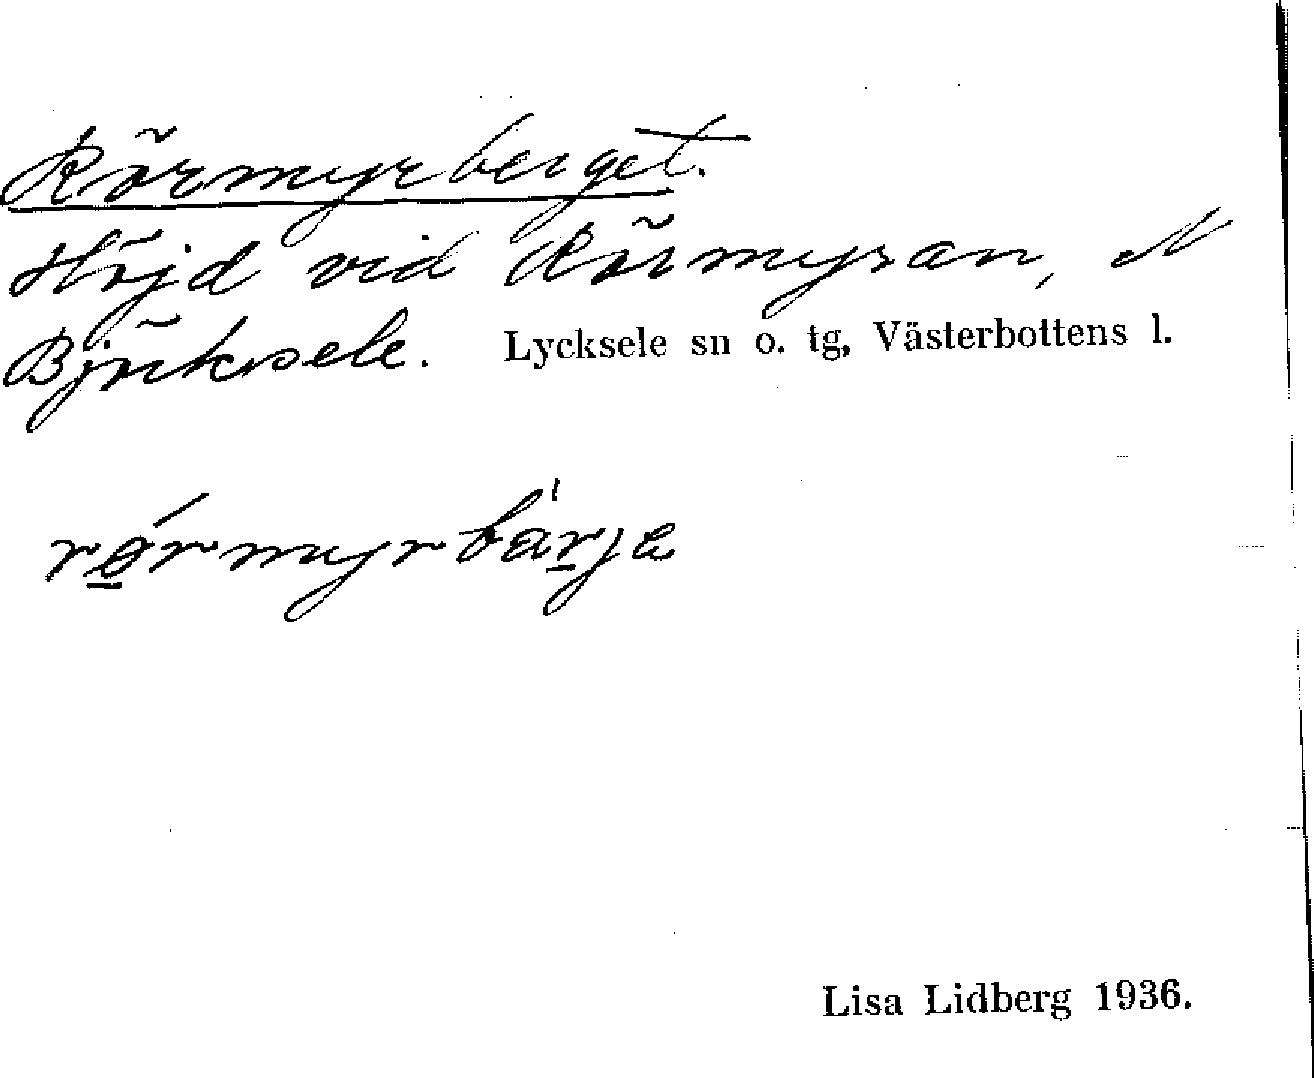 Rörmyrberget.
Höjd vid Rörmyran, N
Björksele. Lycksele sn o. tg, Västerbottens l.
rǿ̲rmyrbär̲je
Lisa Lidberg 1936.